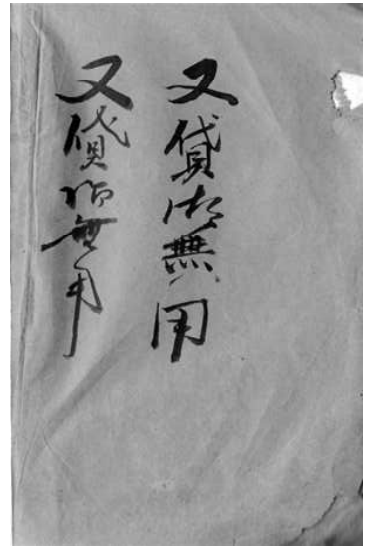 又貸御無用
又貸御無用